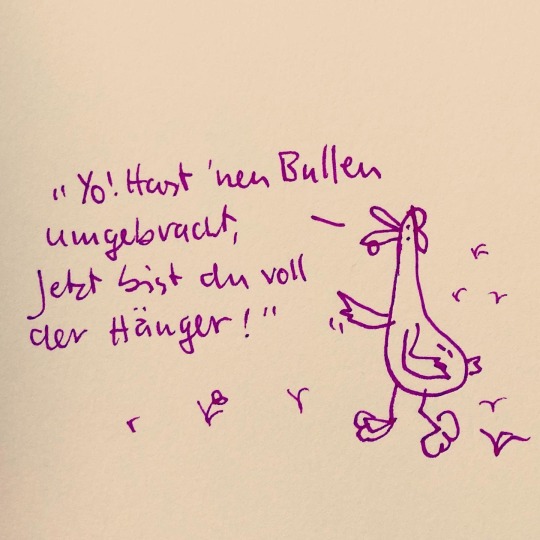 "Yo! Hast 'nen Bullen
umgebracht,
Jetzt bist du voll
der Hänger!"